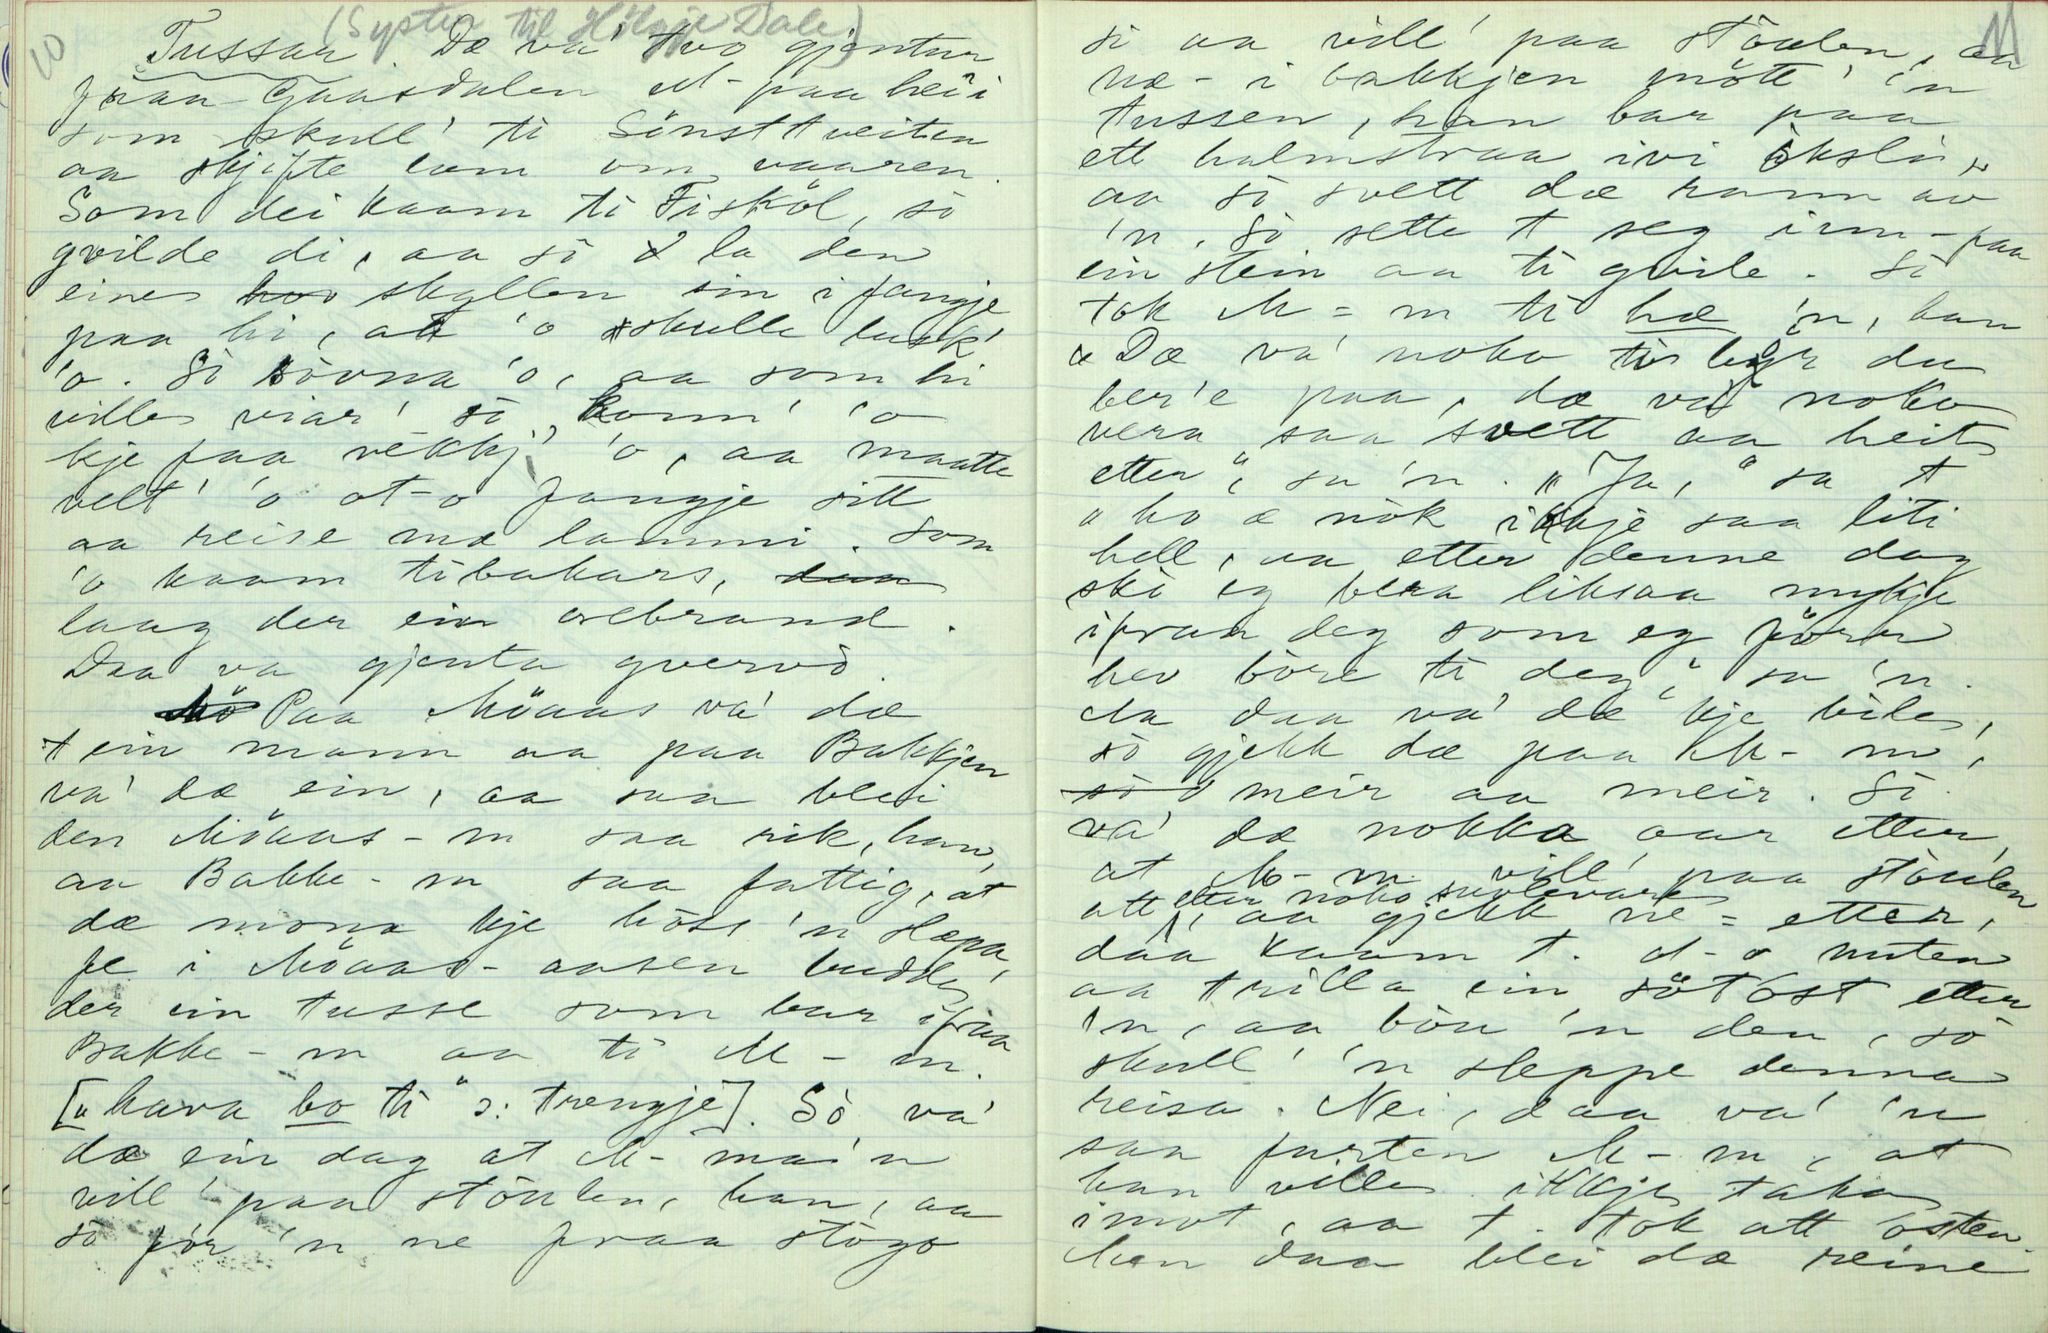 10
(Syster til Hölgje Dale)
Tussar. Dæ va' tvo gjentur
fraa Gaasdalen M- paa hei'i
som skull' ti Sönsttveiten
aa skjifte lam om vaaren.
Som dei kaam ti Fisköl, so
gvilde di, aa so la den
eine skyllen sin i fangje
paa hi, at 'o skulle lusk'
'o. So sovna 'o, aa som hi
ville viar' so konn' 'o
kje faa vekkj' 'o, aa maatte
velt' 'o ot-o fangje sitt
aa reise mæ lammi. Som
'o kaam tibakars,
laag der ein orebrand.
Daa va gjenta gvervò.
Paa Möaas va' dæ
ein mann aa paa Bakkjen
va' dæ ein, aa saa blei
den Möaas-m saa rik, han,
aa Bakke-m saa fattig, at
dæ mona kje höss 'n slæpa,
fe i Möaas-aasen budde
der ein tusse som bar ifraa
Bakke-m aa ti M-m.
["kava ho ti" ɔ: trengje]. So va'
dæ ein dag at M-ma'n
vill' paa stöulen, han, aa
so for 'n ne fraa stogo
11
si aa vill' paa stöulen, aa
næ- i bakkjen mött' 'n
tussen, han bar paa
ett halmstraa ivi òksli,
aa so svett dæ rann av
'n. So sette t seg inn-paa
ein stein aa ti gvile. So
tok M-m ti hæ 'n, han
"Dæ va' noko ti byr du
ber'e paa, dæ va noko
vera saa svett aa heit
etter", sa 'n. "Ja," sa t
"ho æ nok ikkje saa liti
hell, aa etter denne dag
ski eg bera liksaa mykje
ifraa deg som eg förr
hev bore ti deg," sa 'n.
Aa daa va' dæ kje bile,
so gjekk dæ paa M-m,
meir aa meir. So
va' dæ nokka aar etter,
at M-m vill' paa stöulen
att etter noko suvlevara, aa gjekk ne-etter,
daa kaam t. d-o nuten
aa trilla ein sötost etter
'n, aa bòu 'n den, so
skull' 'n sleppe denna
reisa. Nei, daa va' 'n
saa furten M-m, at
han ville ikkje taka
imot, aa t. tok att osten.
Men daa blei dæ reine